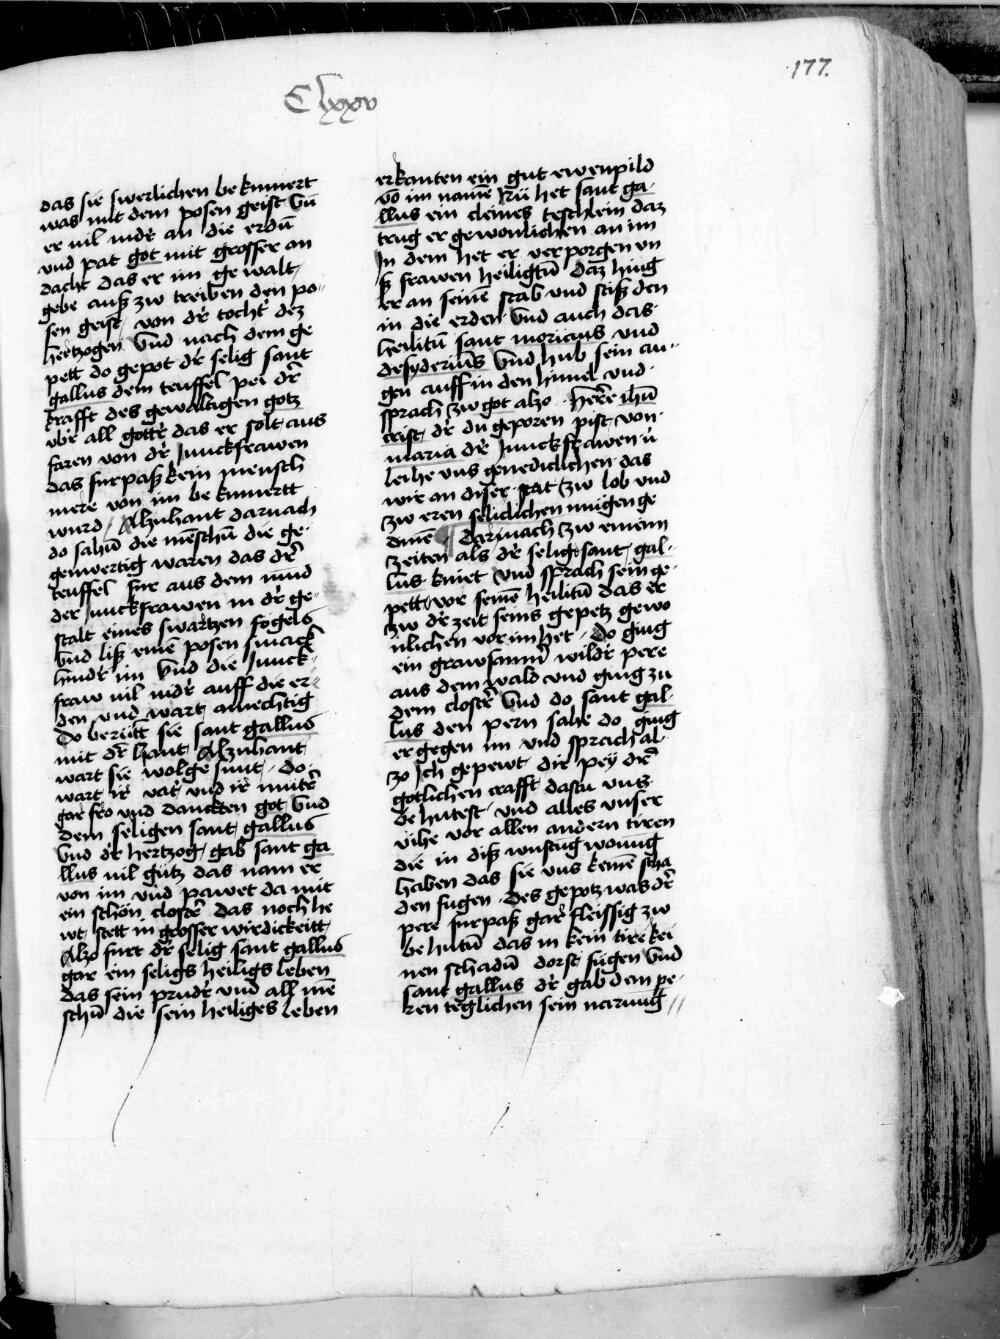 177.
Clxxv
das sie swerlichen bekumert
was mit dem posen geist vn̄
er vil nider an die erdn̄
vnd pat got mit grosser an
dacht das er im gewalt
gebe auß zw treiben den po-
sen geist von dr̄ tocht̄ dez
hertzogen Vnd nach dem ge
pett do gepot dr̄ selig sant
gallus dem teuffel pei dr̄
krafft des gewaltigen gotz
vbr̄ all gottr̄ das er solt aus
faren von dr̄ Junckfrawen
das furpaß kein mensch
mere von im bekumertt
wurd / Alzuhant darnach
do sahn̄ die mēschn̄ die ge-
genwertig waren das dr̄
teuffel fur aus dem mūd
der Junckfrawen in dr̄ ge-
stalt eines swartzen fogels
vnd liß einē posen smack
hindr̄ im Vnd die Junck-
fraw vil nidr̄ auff die er-
den vnd wart amechtig
Do berurt sie sant gallus
mit dr̄ hant Alzuhant
wart sie wolgesunt Do
wart ir vatr̄ vnd ir mutr̄
gar fro vnd danckten got Vnd
dem seligen sant gallus
Vnd dr̄ hertzog gab sant ga
llus vil gutz das nam er
von im vnd pawet da mit
ein schön closter̄ das noch he
wt stett in grosser wirdickeitt
Alzo furt dr̄ selig sant gallus
gar ein seligs heiligs leben
das sein prudr̄ vnd all mē
schn̄ die sein heiliges leben
erkanten ein gut ewenpild
vō im namē Nu het sant ga-
llus ein cleines teschlein daz
trug er gewonlichen an im
In dem het er verporgen vn
ß frawen heiligtū daz hing
er an seinē stab vnd stiß den
in die erden Vnd auch das
heilitū sant moricius vnd
desyderius Vnd hub sein au-
gen auff in den himel vnd
sprach zw got alzo Herre ihū
crist dr̄ du geporen pist von
maria dr̄ Junckfrawen v̄
leihe vns genediclichen das
wir an diser stat zw lob vnd
zw eren seliclichen mugen ge
dinē ¶ Darnach zw einem
zeiten als dr̄ selig sant gal-
lus kniet vnd sprach sein ge-
pett vor seinē heilitū das er
zw dr̄ zeit seins gepetz gewo
nlichen vor im het Do ging
ein grawsamr̄ wildr̄ pere
aus dem wald vnd ging zu
dem closter̄ Vnd do sant gal-
lus den pern sahe do ging
er gegen im vnd sprach al-
zo Ich gepewt dir pey dr̄
gotlichen crafft dastu vns
behutest vnd alles vnser
vihe vor allen andern tiren
die in diß wustug wonug
haben das sie vns keinē scha
den fugen Des gepotz was dr̄
pere furpaß gar fleissig zw
behutn̄ das in kein tire kei
nen schadn̄ dorst fugen Vnd
sant gallus dr̄ gab dem pe-
ren teglichen sein narung //